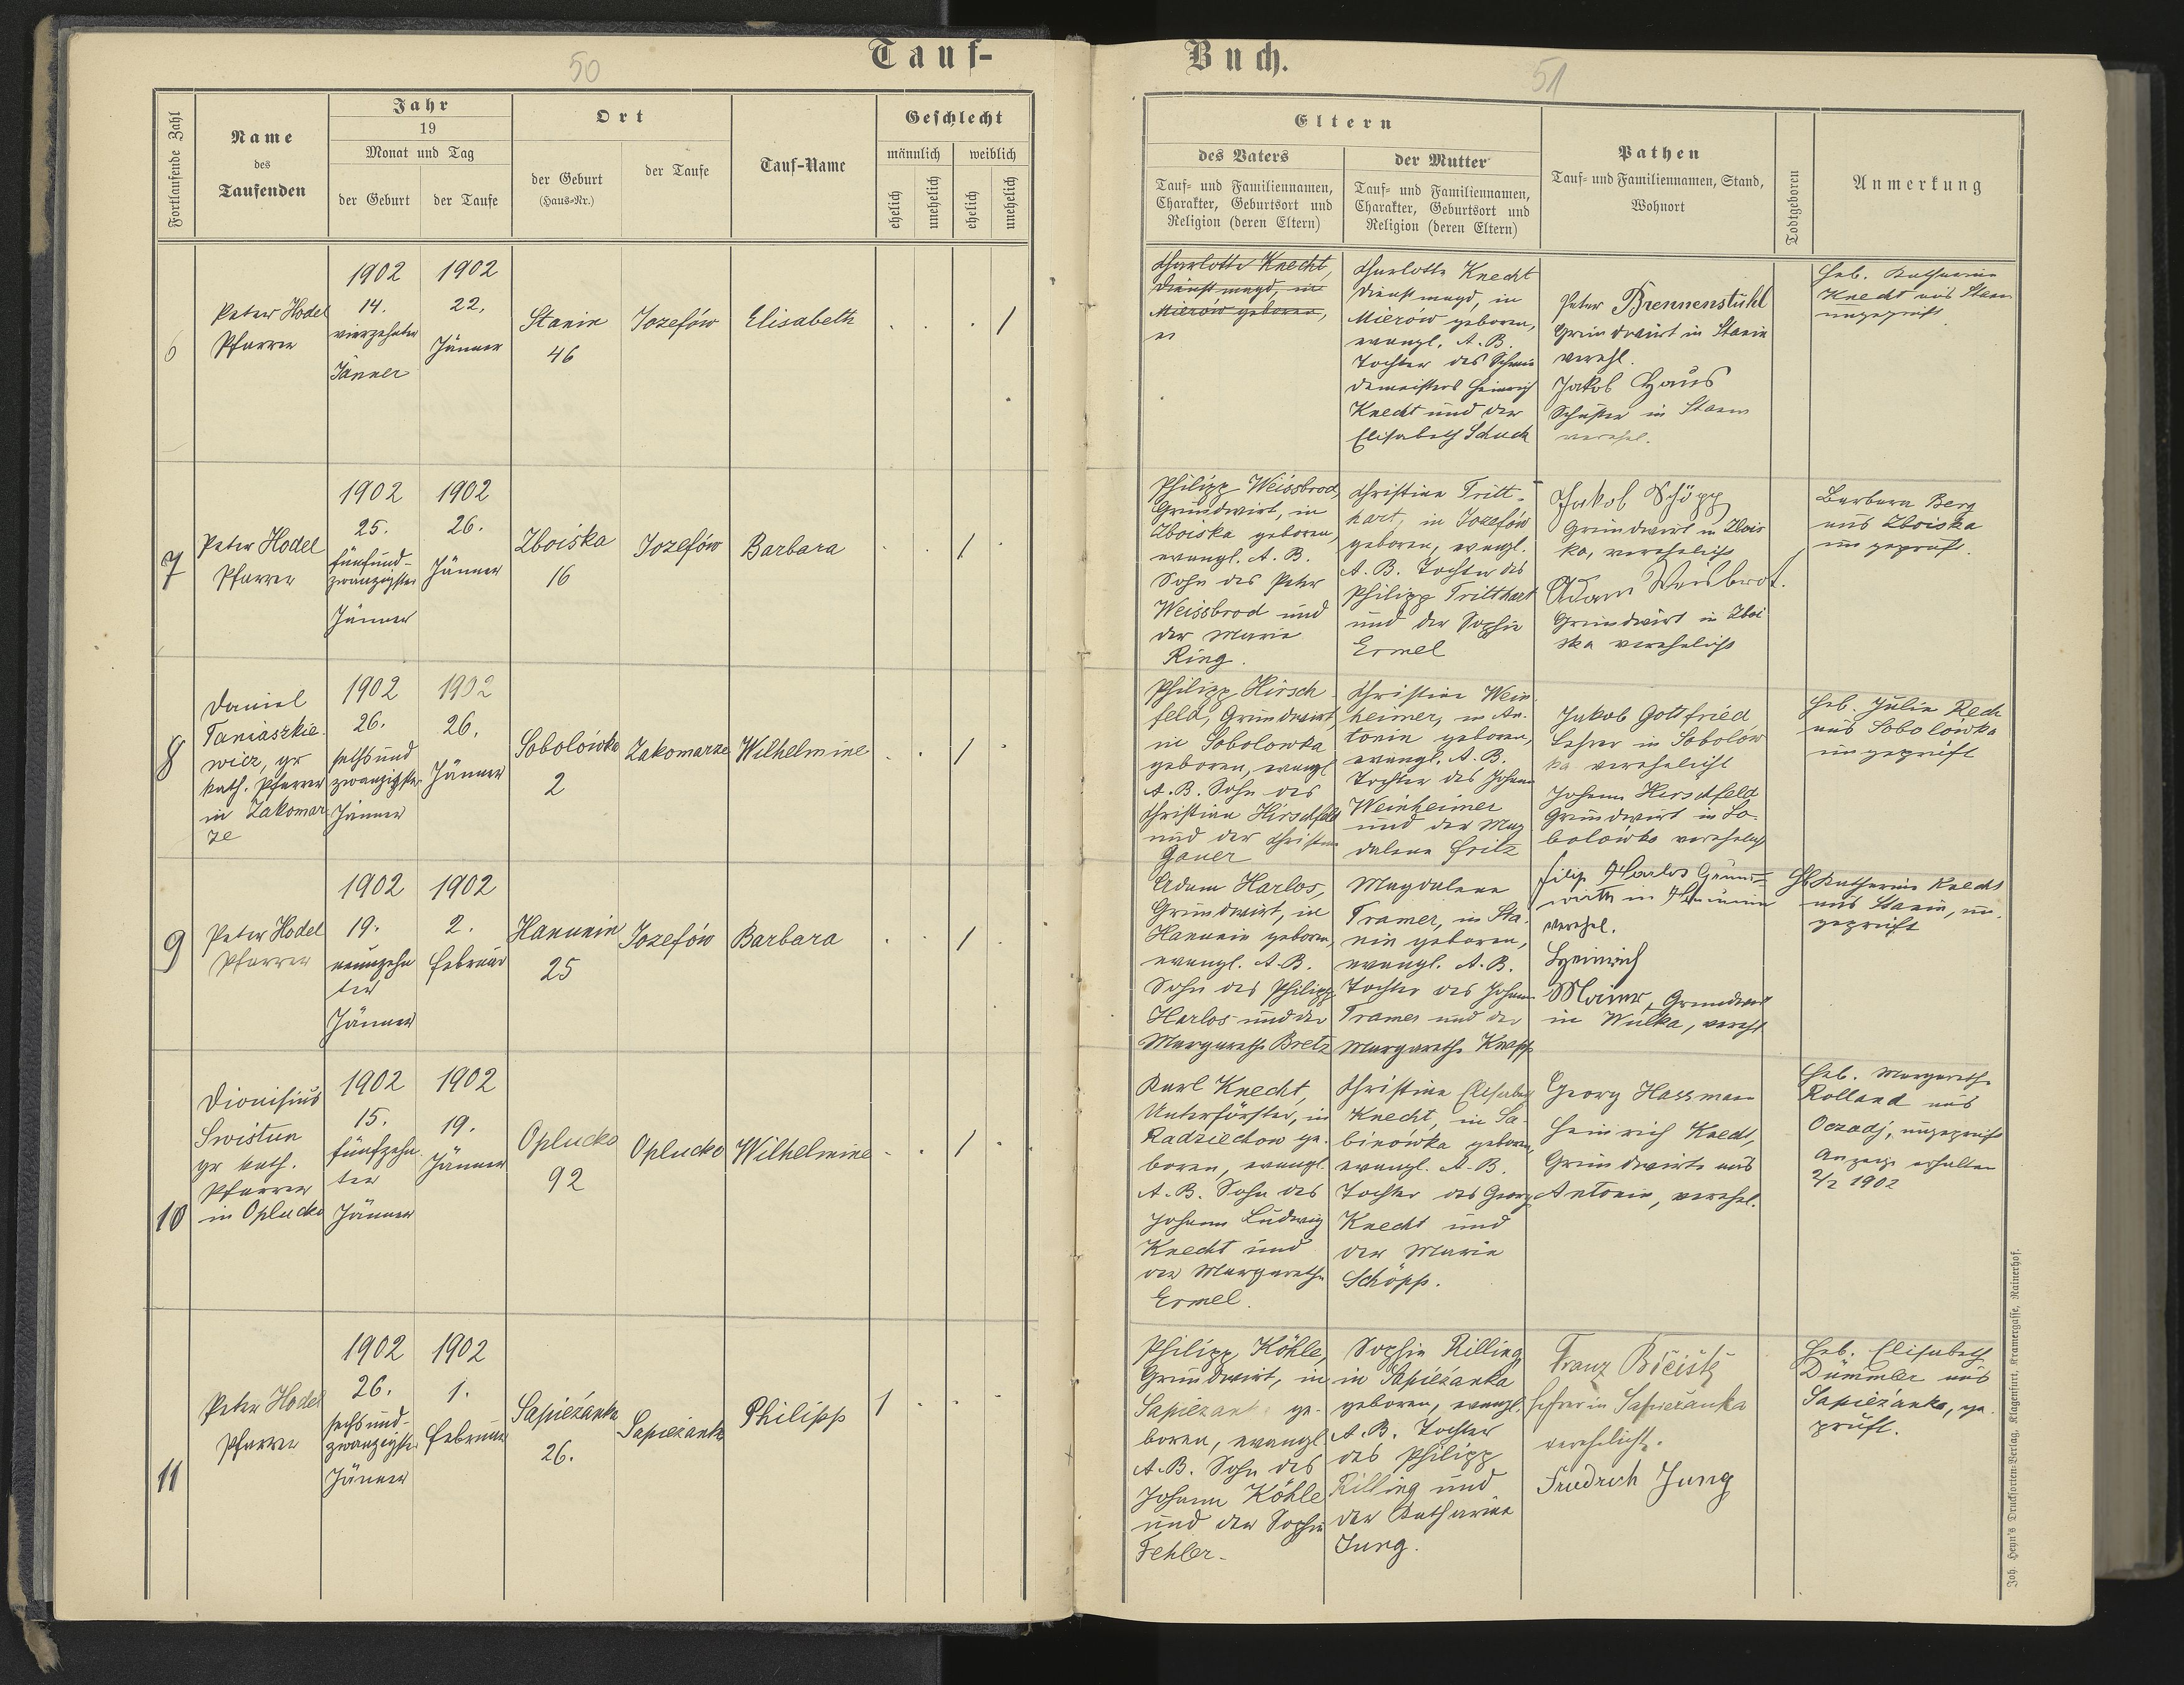 50
Tauf-
Fortlaufende Zahl
Name
des
Taufenden
Jahr
19
Monat und Tag
der Geburt
der Taufe
Ort
der Geburt
(Haus-Nr.)
der Taufe
Tauf-Name
Geschlecht
männlich
weiblich
ehelich
unehelich
ehelich
unehelich
6
Peter Hodel
Pfarrer
1902
14.
vierzehnter
Jänner
1902
22.
Jänner
Stanin
46
Jozefów
Elisabeth
. . . 1
7
Peter Hodel
Pfarrer
1902
25.
fünfund-
zwanzigster
Jänner
1902
26.
Jänner
Zboiska
16
Jozefów
Barbara
. . 1
8
Daniel
Taniaszkie-
wicz, gr
kath. Pfarrer
in Zakomar
ze
1902
26.
sechsund
zwanzigster
Jänner
1902
26.
Jänner
Sobolówka
2
Zakomarze
Wilhelmine
. . 1 .
9
Peter Hodel
Pfarrer
1902
19.
neunzehn
ter
Jänner
1902
2.
Februar
Hanunin
25
Jozefów
Barbara
. . 1 .
10
Dionisius
Swistun
gr kath.
Pfarrer
in Oplucko
1902
15.
fünfzehn
ter
Jänner
1902
19.
Jänner
Oplucko
92
Oplucko
Wilhelmine
. . 1 .
11
Peter Hodel
Pfarrer
1902
26.
sechsund-
zwanzigster
Jänner
1902
1.
Februar
Sapieżanka
26.
Sapieżanka
Philipp
1 . . .
51
Buch.
Eltern
des Vaters
Tauf- und Familiennamen,
Charakter, Geburtsort und
Religion (deren Eltern)
der Mutter
Tauf- und Familiennamen,
Charakter, Geburtsort und
Religion (deren Eltern)
Pathen
Tauf- und Familiennamen, Stand,
Wohnort
Todtgeboren
Anmerkung
Charlotte Knecht,
Dienstmagd, in
Mierów geboren,
Charlotte Knecht
Dienstmagd, in
Mierów geboren,
evangl. A. B.
Tochter des
Heinrich
Knecht und der
Elisabeth Schuck
Peter Brennenstuhl
Grundwirt in Stanin
verehl.
Jakob Haus
Schuster in Stanin
verehel.
Heb. Katharina
Knecht aus Stanin
ungeprüft
Philipp Weissbrod,
Grundwirt, in
Zboiska geboren,
evangl. A. B.
Sohn des Peter
Weissbrod und
der Marie
Ring.
Christine Tritt-
hart, in Jozefów
geboren, evangl.
A. B. Tochter des
Philipp Tritthart
und der Sophie
Ermel
Jakob Schöpp
Grundwirt in Zbois
ka, verehelicht
Adam Weisbrot.
Grundwirt in Zboi
ska verehelicht
Barbara Berg
aus Zboiska
ungeprüft.
Philipp Hirsch-
feld, Grundwirt,
in Sobolowka
geboren, evangl
A. B. Sohn des
Christian Hirschfeld
und der Christine
Gauer
Christine Wein-
heimer, in An-
tonin geboren,
evangl. A. B.
Tochter des Johann
Weinheimer
und der Mag
dalena Fritz
Jakob Gottfried,
Lehrer in Sobolów
ka verehelicht
Johann Hirschfeld
Grundwirt in So-
bolówka verehelicht
Heb. Julie Rech
aus Sobolowka
ungeprüft
Adam Harlos,
Grundwirt, in
Hanunin geboren,
evangl. A. B.
Sohn des Philipp
Harlos und der
Margarethe Bretz
Magdalena
Tramer, in Sta-
nin geboren,
evangl. A. B.
Tochter des Johann
Tramer und der
Margarethe Knapp
Filip Harlos Grund-
wirth in Hanunin
verehel.
Heinrich
Mainer, Grundwirt
in Wulka, vereht
Hb Katharina Knecht
aus Stanin, un-
geprüft
Karl Knecht,
Unterförster, in
Radziechow ge-
boren, evangl.
A. B. Sohn des
Johann Ludwig
Knecht und
der Margarethe
Ermel.
Christine Elisabeth
Knecht, in Sa-
binówka geboren,
evangl. A. B.
Tochter des Georg
Knecht und
der Marie
Schöpp.
Georg Hassmann
Heinrich Knecht,
Grundwirte aus
Antonin, verehel.
Heb. Margarethe
Rolland aus
Oczadj, ungeprüft
Anzeige erhalten
2/2 1902
Philipp Köhle,
Grundwirt, in
Sapiezanka ge-
boren, evangl.
A. B. Sohn des
Johann Köhle
und der Sophie
Fehler.
Sophie Rilling
in Sapieżanka
geboren, evangl.
A. B. Tochter
des Philipp
Rilling und
der Katharina
Jung.
Franz
Lehrer in Sapieżanka
verehelicht.
Friedrich Jung
Heb. Elisabeth
Dümmler aus
Sapieżanka, ge-
prüft.
Joh. Heyn's Drucksorten-Verlag, Klagenfurt, Kramergasse, Rainerhof.